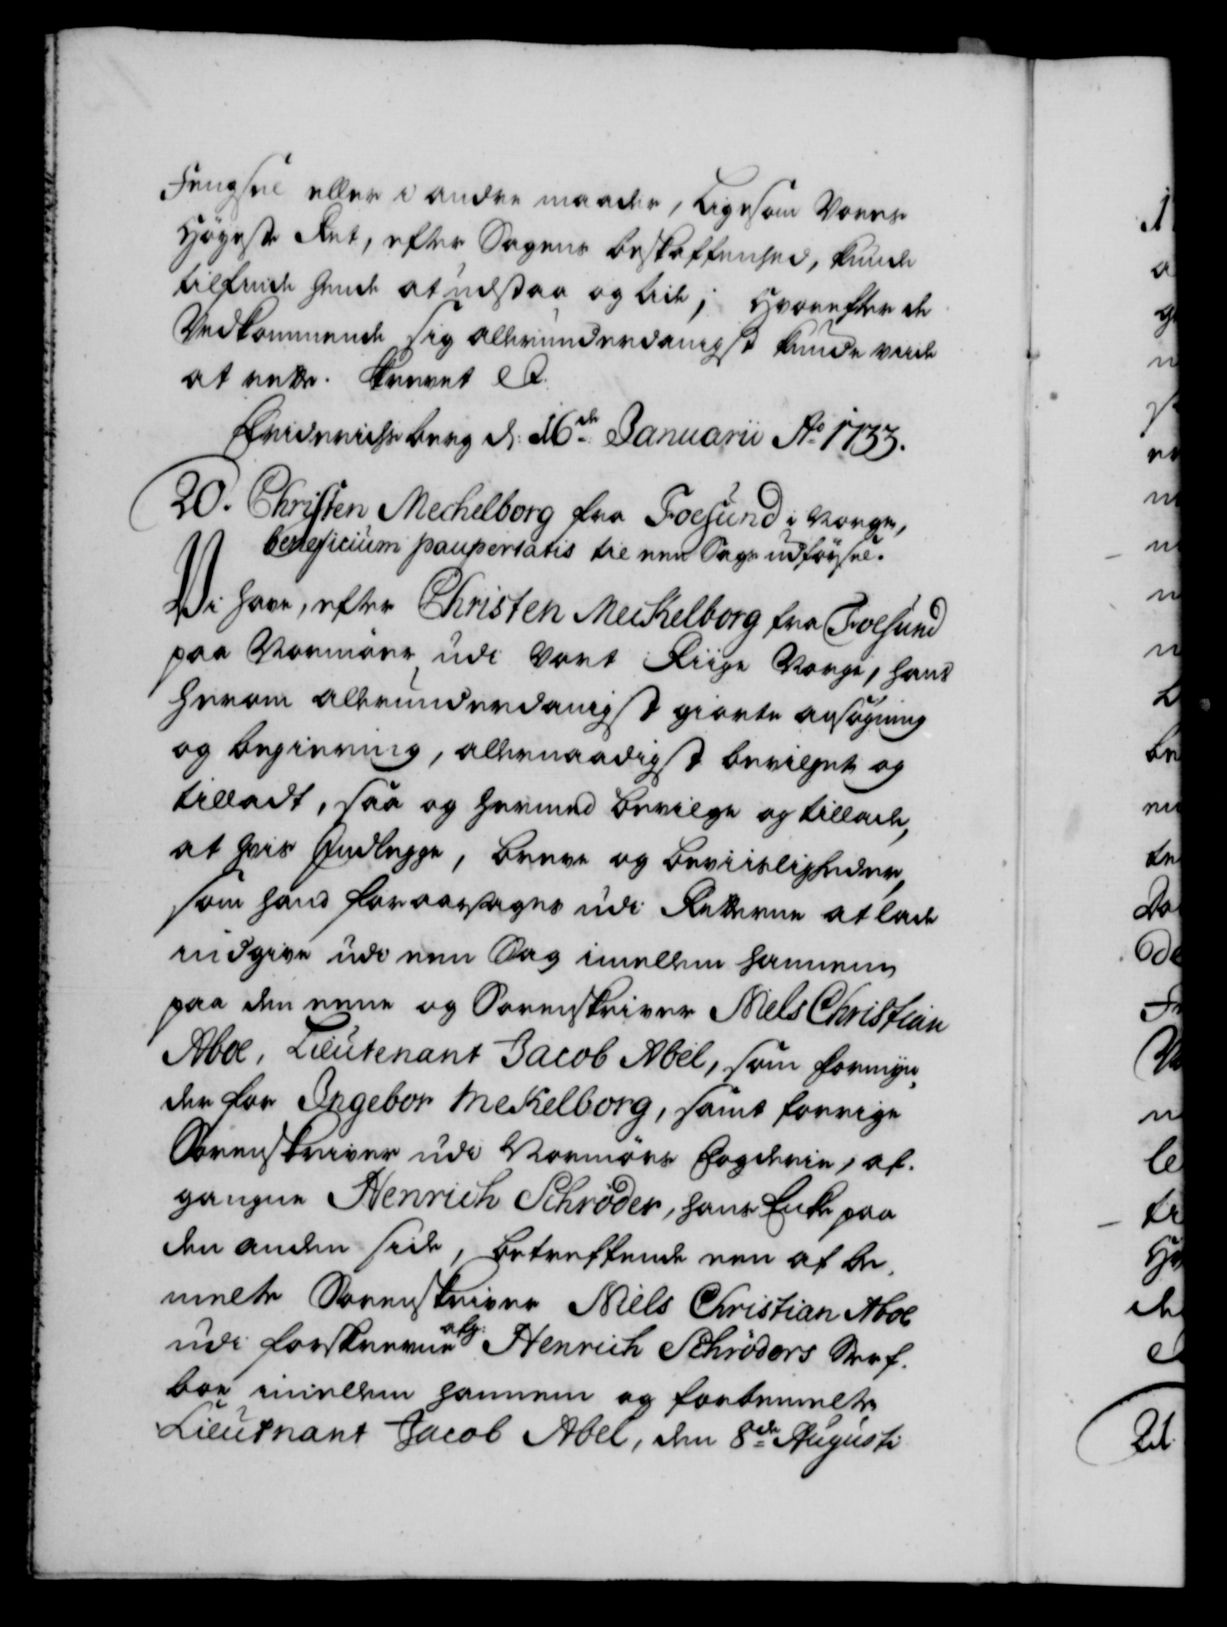 Fengsel eller i andre maader, ligesom Vores
Høyeste Ret, efter Sagens beskaffenhed, kunde
tilfinde hende at udstaa og lide; Hvorefter de
Vedkommende sig allerunderdanigst kunde viide
at rette. Skrevet &c.
Friderichsberg d: 16de Januarii Ao 1733.
20. Christen Mechelborg fra Foesund i Norge,
beneficium paupertatis til een Sags udførsel.
Vi have, efter Christen Meckelborg fra Foesund
paa Normøer udi Vort Riige Norge, hans
herom allerunderdanigst giorte ansøgning
og begiering, allernaadigst bevilget og
tilladt, saa og hermed bevilge og tillade,
at hvis Indlegge, breve og beviisligheder,
som hand foraarsages udi Retterne at lade
indgive udi een Sag imellem hannem
paa den eene og Sorenskriver Niels Christian
Aboe, Lieutenant Jacob Abel, som formyn,
der for Ingebor Meckelborg, samt forrige
Sorenskriver udi Normørs Fogderie, af-
gangne Henrich Schrøder, hans Enke paa
den anden side, betreffende een af be,
melte Sorenskriver Niels Christian Aboe
udi forskrevne afg: Henrich Schrøders Sterf-
boe imellem hannem og forbemelte
Lieutnant Jacob Abel, den 8de Augusti
21